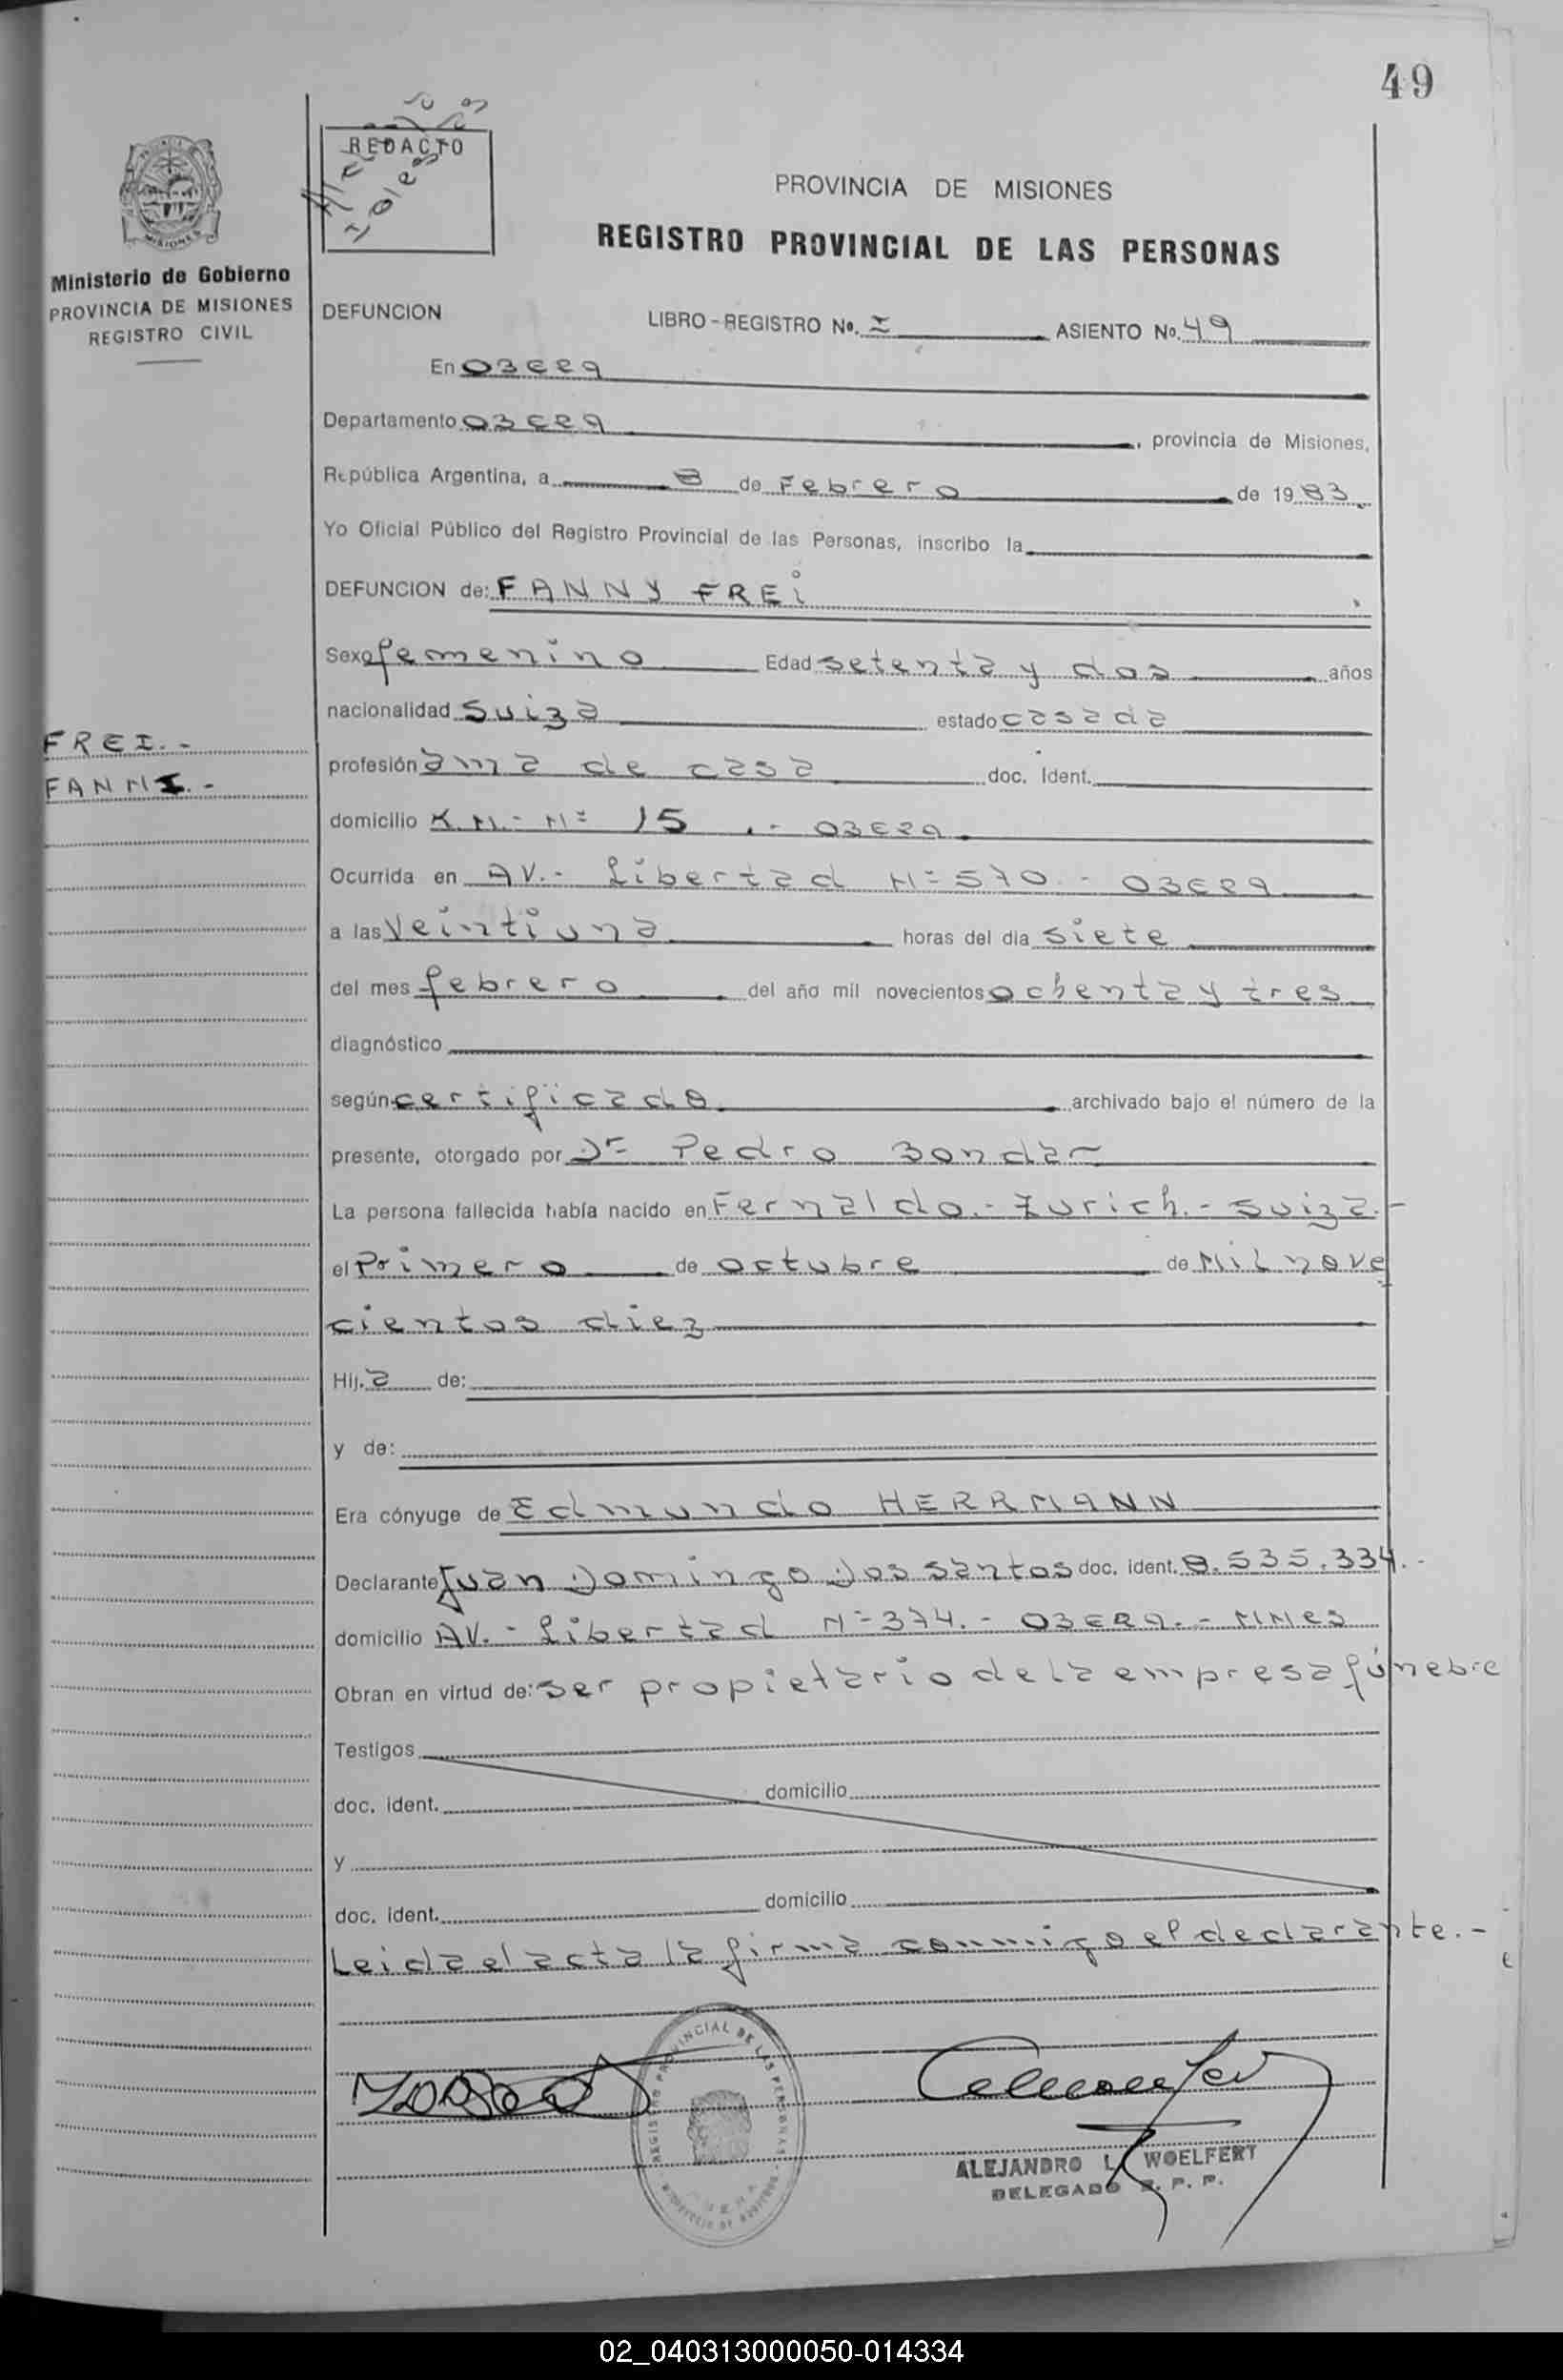 49
REDACTO
PROVINCIA DE MISIONES
REGISTRO PROVINCIAL DE LAS PERSONAS
MISIONES
Ministerio de Gobierno
PROVINCIA DE MISIONES
REGISTRO CIVIL
DEFUNCION LIBRO-REGISTRO No. I ASIENTO No. 49
En OBERA
Departamento OBERA, provincia de Misiones,
República Argentina, a 8 de Febrero de 1983.
Yo Oficial Público del Registro Provincial de las Personas, inscribo la
DEFUNCION de: FANNY FREI
Sexo femenino Edad setenta y dos años
nacionalidad Suiza estado casada
FREI.-
FANNI.-
profesión ama de casa doc. ident.
domicilio K.M.- Nº 15 .- OBERA.
Ocurrida en AV.- Libertad Nº 570.- OBERA
a las Veintiuna horas del dia siete
del mes febrero del año mil novecientos ochenta y tres
diagnóstico
según certificado archivado bajo el número de la
presente, otorgado por Dr Pedro Bondar
La persona fallecida había nacido en Fernaldo.- Zurich.- Suiza.-
el Primero de octubre de Mil nove
cientos diez
Hij. a de:
y de:
Era cónyuge de Edmundo HERRMANN
Declarante Juan Domingo Dos Santos doc. ident. 8.535.334.-
domicilio AV.- Libertad Nº 374.- OBERA.- MNes
Obran en virtud de: ser propietario de la empresa fúnebre
Testigos
doc. ident. domicilio
y
doc. ident. domicilio
Leida el acta la firma conmigo el declarante.-
REGISTRO PROVINCIAL DE LAS PERSONAS
ALEJANDRO L. WOELFERT
DELEGADO R. P. P.
02_040313000050-014334